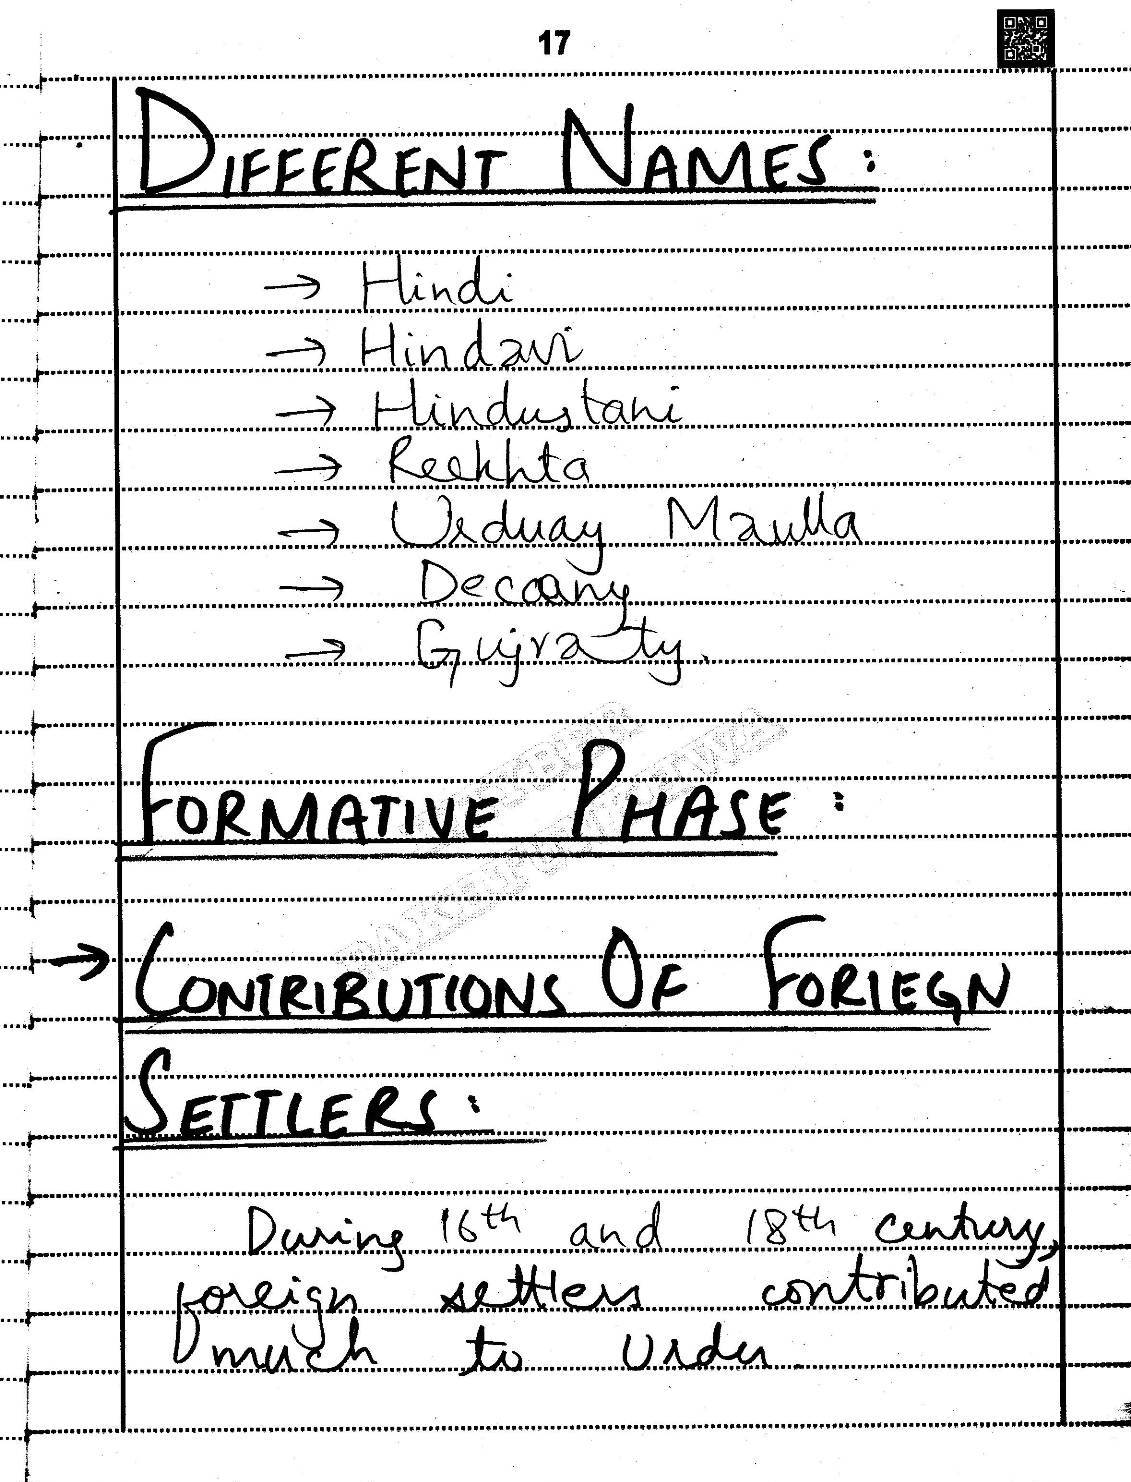 17
DIFFERENT NAMES:
→ Hindi
→ Hindavi
→ Hindustani
→ Reekhta
→ Urduay Maulla
→ Decaany
→ Gujraty.
FORMATIVE PHASE:
→ CONTRIBUTIONS OF FORIEGN
SETTLERS:
During 16th and 18th century,
foreign settlers contributed
much to Urdu.